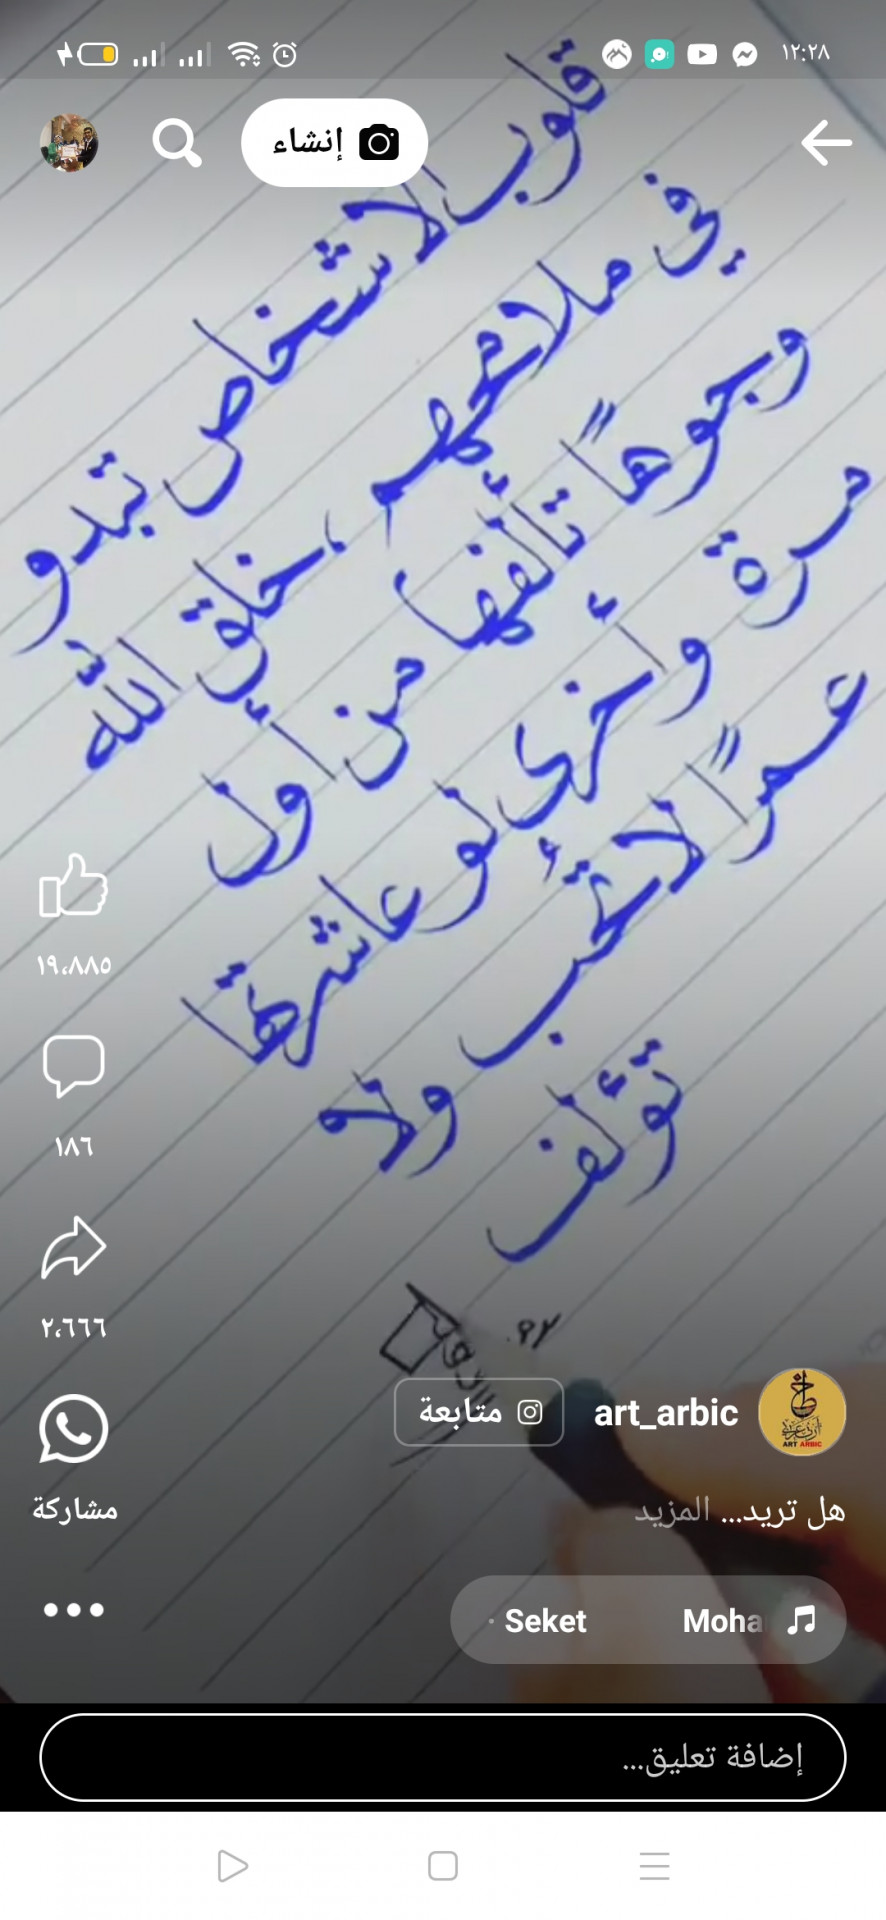 ١٢:٢٨
إنشاء
قلوب الاشخاص تبدو
في ملامحهم ، خلق الله
وجوهاً تألفها من أول
مرة وأخرى لو عاشرتها
عمراً لا تُحب ولا
تؤلف
art_arbic متابعة
ART ARBIC
هل تريد... المزيد
Moha Seket ·
١٩،٨٨٥
١٨٦
٢،٦٦٦
مشاركة
إضافة تعليق...